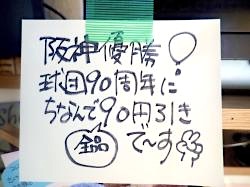 阪神優勝
球団90周年に
ちなんで90円引き
鍋 で〜す